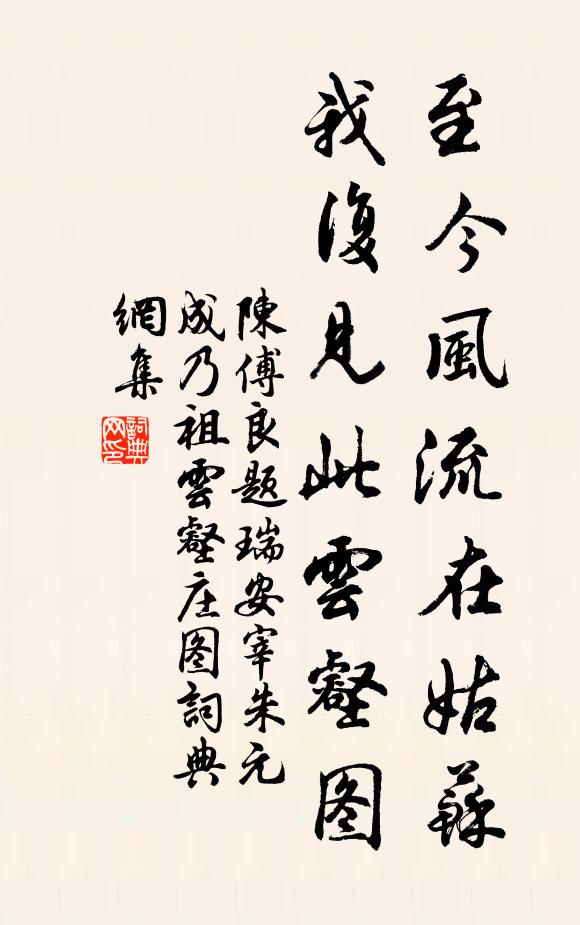 至今風流在姑蘇
我復見此雲壑图
陳傅良题瑞安宰朱元
成乃祖雲壑庄图詞典
網集
詞典
网印